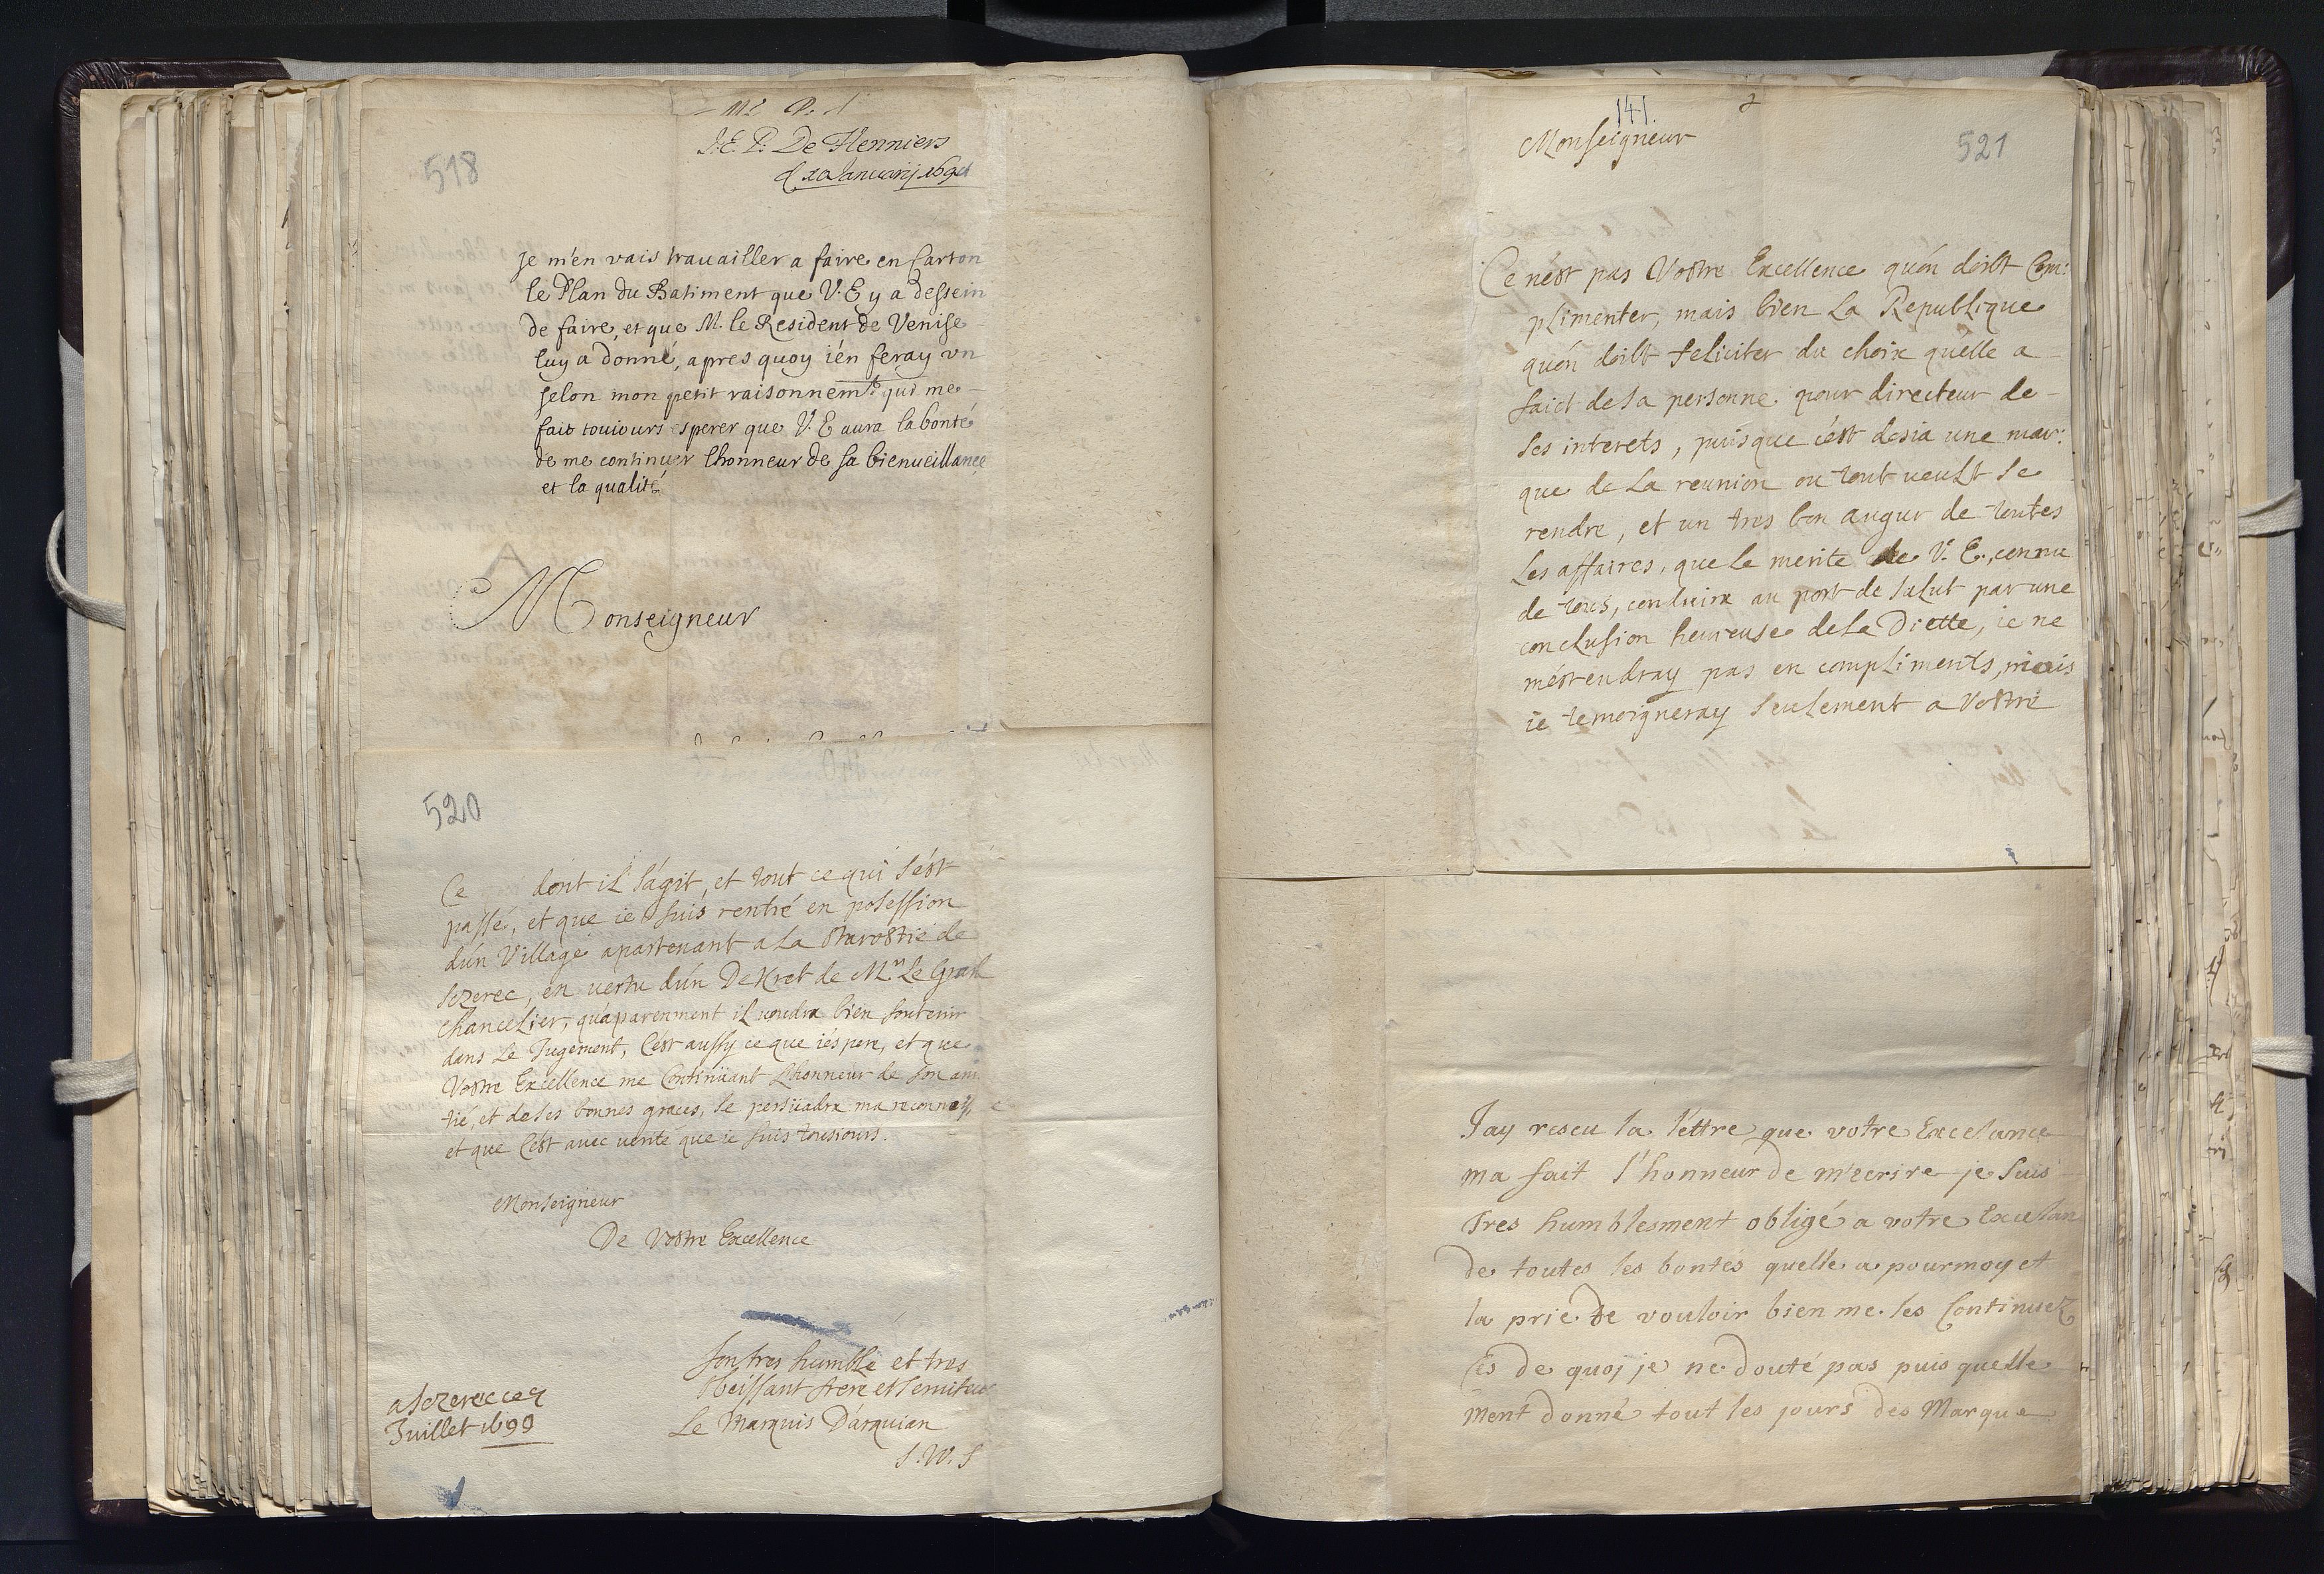 518
J. E. P. De Flenniers
je m'en vais trauailler a faire en Carton
le Plan du Batiment que V. E y a dessein
de faire, et que M. le Resident de Venise
luy a donné, apres quoy i'en feray vn
selon mon petit raisonnemt. qui me
fait touiours esperer que V. E aura la bonté
de me continuer l'honneur de sa bienueillance
et la qualité
Monseigneur
520
Ce dont il s'agit, et tout ce qui s'est
passé, et que ie suis rentré en posession
d'un Village apartenant a La Starostie de
Sezerec, en vertu d'un Dekret de Mr. Le Grand
Chancelier, qu'aparenment il voudra bien soutenir
dans Le Jugement, C'est aussy ce que i'espere, et que
Vostre Excellence me Continüant L'honneur de son ami
tié, et de ses bonnes graces, se persüadra ma reconnoiss
et que C'est auec verité que ie suis tousiours.
Monseigneur
De Vostre Excellence
Son tres humble et tres
Obeissant frere et seruiteur
Le Marquis D'arquian
S. W. S
Juillet 1699
141.
Monseigneur
521
Ce n'est pas Vostre Excellence qu'on doibt Com:
plimenter, mais bien La Republique
qu'on doibt feliciter du choix qu'elle a
faict de sa personne pour directeur de
ses interets, puisque c'est desia une mar:
que de La reunion ou tout veult se
rendre, et un tres bon augur de toutes
Les affaires, que Le merite de V. E., connu
de tous, conduira au port de salut par une
conclusion heureuse de La Diette, ie ne
m'estendray pas en compliments, mais
ie temoigneray seulement a Vostre
Jay reseu la lettre que votre Excelance
ma fait l'honneur de m'ecrire je suis
Tres humblesment obligé a votre Excelan
de toutes les bontés quelle a pour moy et
la prie De vouloir bien me les Continuer
Ces de quoj je ne douté pas puis quelle
ment donné tout les jours des Marque